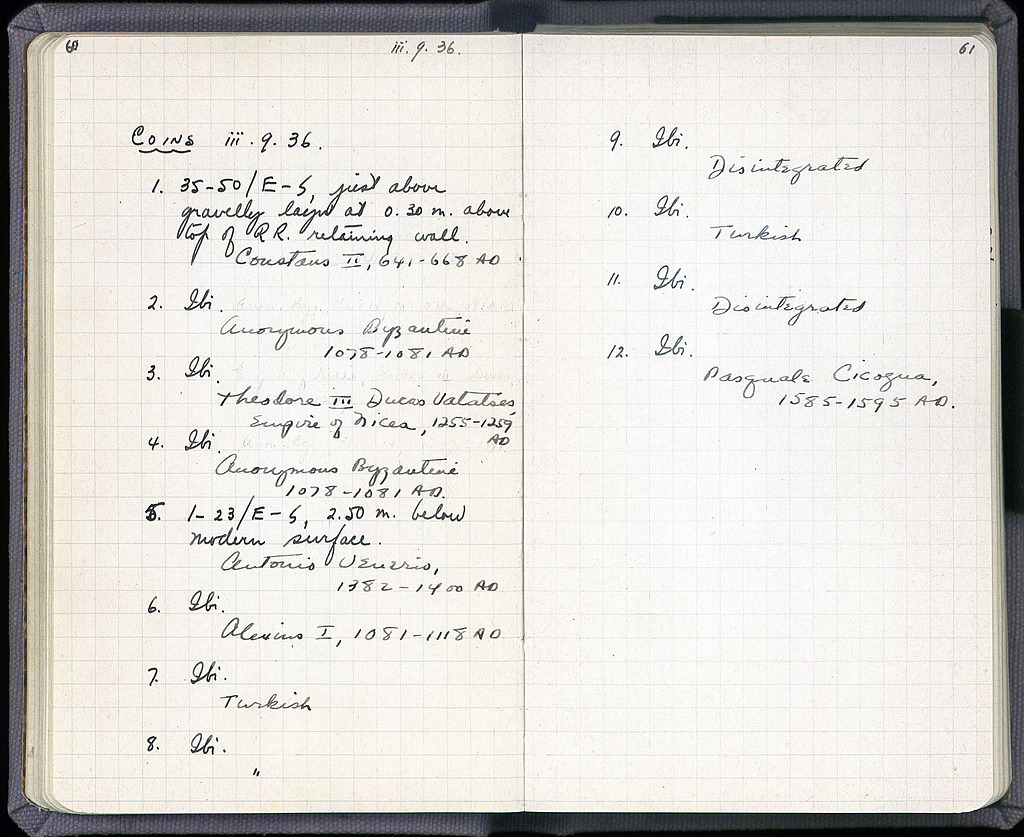 60
iii. 9. 36.
COINS iii. 9. 36.
1. 35-50/E-S, just above
gravelly layer at 0.30 m. above
top of R.R. retaining wall.
Constans II, 641-668 AD
2. Ibi.
Anonymous Byzantine
1078-1081 AD
3. Ibi.
Theodore III Ducas Vatatses,
Empire of Nicea, 1255-1259
AD
4. Ibi.
Anonymous Byzantine
1078-1081 AD.
5. 1-23/E-S, 2.50 m. below
modern surface.
Antonio Venerio,
1382-1400 AD
6. Ibi.
Alexius I, 1081-1118 AD
7. Ibi.
Turkish
8. Ibi.
"
61
9. Ibi.
Disintegrated
10. Ibi.
Turkish
11. Ibi.
Disintegrated
12. Ibi.
Pasquale Cicogna,
1585-1595 AD.